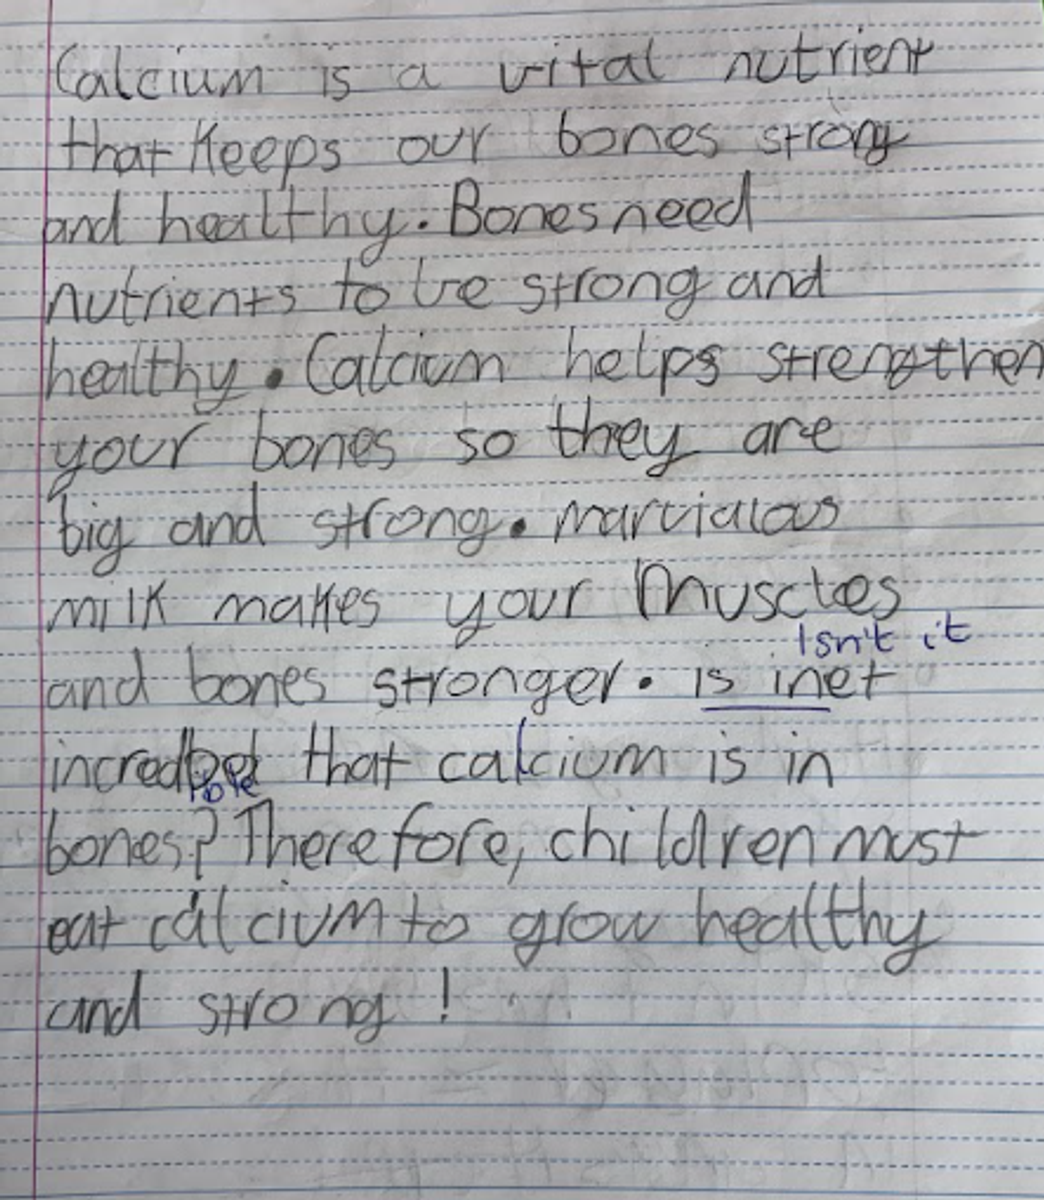 Calcium is a vital nutrient
that keeps our bones strong
and healthy. Bones need
nutrients to be strong and
healthy. Calcium helps strengthen
your bones so they are
big and strong. marvialous
milk makes your Muscles
Isn't it
and bones stronger. is inet
incredbel that calcium is in
ble
bones? Therefore, children must
eat calcium to grow healthy
and strong!